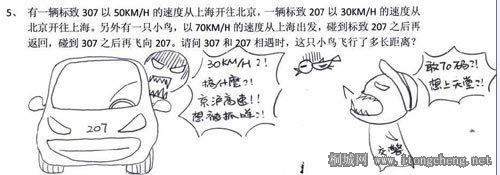 5、 有一辆标致 307 以 50KM/H 的速度从上海开往北京，一辆标致 207 以 30KM/H 的速度从
北京开往上海。另外有一只小鸟，以 70KM/H 的速度从上海出发，碰到标致 207 之后再
返回，碰到 307 之后再飞向 207。请问 307 和 207 相遇时，这只小鸟飞行了多长距离？
30KM/H?!
搞什麼?!
京沪高速!!
想被抓啦?!
敢70码?!
想上天堂?!
207
交警
桐城网
www.itongcheng.net